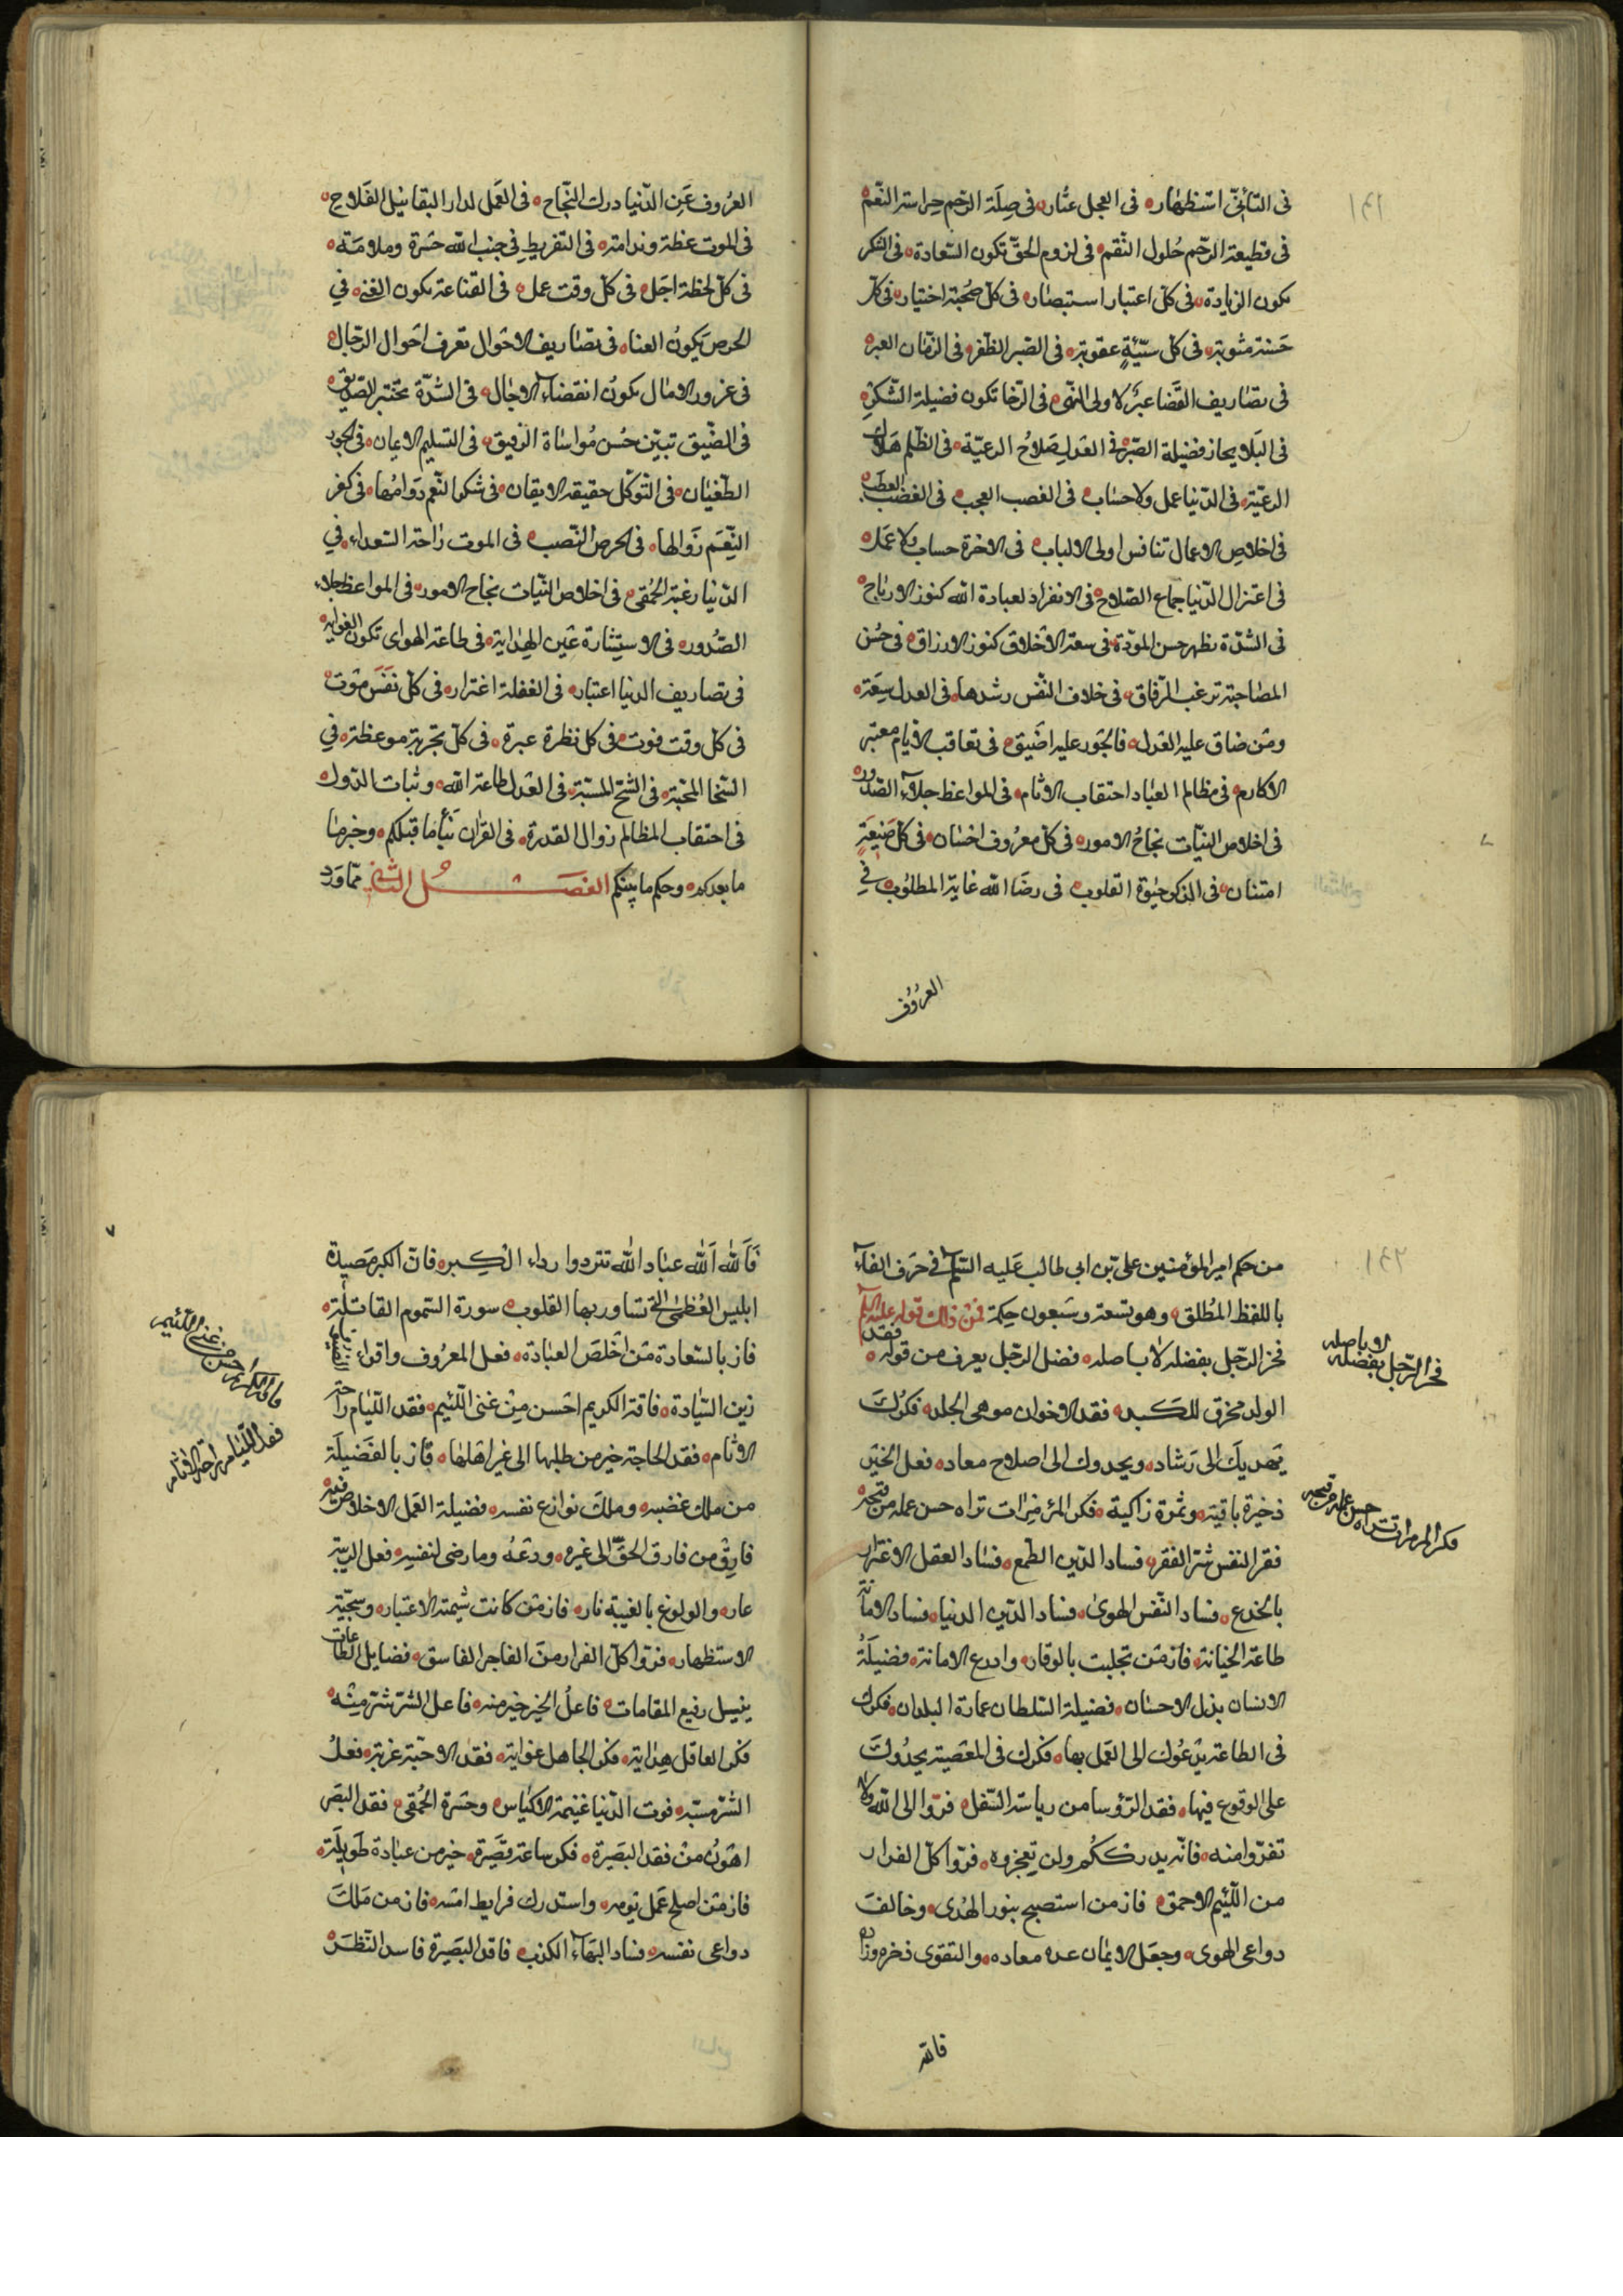 ١٤١
فى التأنّى استظهار فى العجل عثار فى صلة الرّحم حراسة النّعم
فى قطيعة الرّحم حلول النّقم فى لزوم الحقّ تكون السّعادة فى الشكر
تكون الزيادة فى كلّ اعتبار استبصار فى كلّ صحبة اختيار فى كلّ
حسنة مثوبة فى كلّ سيّئةٍ عقوبة فى الصّبر الظّفر فى الزّمان العبر
فى تصاريف القضا عبرة لاولى النّهى فى الرّخا تكون فضيلة الشّكر
فى البلاء يحاز فضيلة الصّبر فى العدل صلاح الرعيّة فى الظّلم هلاك
الرعيّة فى الدّنيا عمل ولا حساب فى الغضب العجب فى الغضب العطب
فى اخلاص الاعمال تنافس اولى الالباب فى الاخرة حساب ولا عمل
فى اعتزال الدّنيا جماع الصّلاح فى الانفراد لعبادة الله كنوز الارباح
فى الشدّة يظهر حسن المودّة فى سعة الاخلاق كنوز الارزاق فى حسن
المصاحبة ترغب الرّفاق فى خلاف النّفس رشدها فى العدل سعة
ومن ضاق عليه العدل فالجور عليه اضيق فى تعاقب الايام معتبر
الاكارم فى مظالم العباد احتقاب الاثام فى المواعظ جلاء الصّدور
فى اخلاص النيّات نجاح الامور فى كلّ معروف احسان فى كلّ صنيعةٍ
امتنان فى الذكر حيوة القلوب فى رضا الله غاية المطلوب فى
العزوف
العزوف عن الدّنيا درك النّجاح فى العمل لدار البقا نيل الفلاح
فى الموت غطة وندامة فى التفريط فى جنب الله حسرة وملامة
فى كلّ لحظة اجل فى كلّ وقت عمل فى القناعة يكون الغنى فى
الحرص يكون العناء فى تصاريف الاحوال تعرف احوال الرّجال
فى غرور الامال يكون انقضاء الاجال فى الشدّة يختبر الصّديق
فى الضّيق تبيّن حسن مواساة الرفيق فى التسليم الايمان فى الجور
الطّغيان فى التوكّل حقيقة الايقان فى شكر النّعم دوامها فى كفر
النّعم زوالها فى الحرص النّصب فى الموت راحة السّعداء فى
الدّنيا رغبة الحمقى فى اخلاص النّيات نجاح الامور فى المواعظ جلاء
الصّدور فى الاستشارة عين الهداية فى طاعة الهوى تكون الغواية
فى تصاريف الدنيا اعتبار فى الغفلة اغترار فى كلّ نفس موت
فى كل وقت فوت فى كل نظرة عبرة فى كلّ تجربة موعظة فى
السّخا المحبّة فى الشحّ المسبّة فى العدل طاعة الله وثبات الدّول
فى احتقاب المظالم زوال القدرة فى القرآن نبأ ما قبلكم وخبر ما
ما بعدكم وحكم ما بينكم الفصل الثانى ممّا ورد
١٤٢
من حكم امير المؤمنين علىّ بن ابى طالب عليه السّلم فى حرف الفاء
باللفظ المطلق وهو تسعة وسبعون حكمة فمن ذلك قوله عليه السّلم
فخر الرّجل بفضله لا باصله فضل الرّجل يعرف من قوله فقد
الولد محرق للكبد فقد الاخوان موهى الجلد فكرك
يهديك الى رشاد ويحدوك الى اصلاح معاد فعل الخير
ذخيرة باقية وثمرة زاكية فكر المرء مرات تراه حسن عمله من قبحه
فقر النفس شرّ الفقر فساد الدّين الطمع فساد العقل الاغترار
بالخدع فساد النّفس الهوى فساد الدّين الدنيا فساد الامانة
طاعة الخيانة فاز من تجلبب بالوقار وادرع الامانة فضيلة
الانسان بذل الاحسان فضيلة السّلطان عمارة البلدان فكرك
فى الطاعة يدعوك الى العمل بها فكرك فى المعصية يحدوك
على الوقوع فيها فقد الرّؤسا من رياسة السّفل فرّوا الى الله ولا
تفرّوا منه فانّه يدرككم ولن تعجزوه فرّوا كلّ الفرار
من اللّئيم الاحمق فاز من استصبح بنور الهدى وخالف
دواعى الهوى وجعل الايمان عدة معاده والتقوى ذخره وزاده
فالله
لا باصله
فخر الرّجل بفضله
فكر المرء مرات تراه حسن عمله من قبحه
فالله الله عباد الله تتردوا رداء الكبر فانّ الكبر مصيدة
ابليس العظمى الّتى تساور بها القلوب سورة السّموم القاتلة
فاز بالسّعادة من اخلص العبادة فعل المعروف واقراء الضيف
زين السّيادة فاقة الكريم احسن من غنى اللّئيم فقد اللّيام راحة
الانام فقد الحاجة خير من طلبها الى غير اهلها فاز بالفضيلة
من ملك غضبه وملك نوازع نفسه فضيلة العمل الاخلاص فيه
فارق من فارق الحقّ الى غيره ودعه وما رضى لنفسه فعل الريبة
عار والولوغ بالغيبة نار فاز من كانت شيمته الاعتبار وسجيّته
الاستظهار فرّوا كلّ الفرار من الفاجر الفاسق فضايل الطّاعات
ينيل رفيع المقامات فاعل الخير خير منه فاعل الشّر شرّ منه
فكر العاقل هداية فكر الجاهل غواية فقد الاحبّة غربة فعل
الشّر مسبّة فوت الدّنيا غنيمة الاكياس وحسرة الحمقى فقد البصر
اهون من فقد البصيرة فكر ساعة قصيرة خير من عبادة طويلة
فاز من اصلح عمل يومه واستدرك فرايط امسه فاز من ملك
دواعى نفسه فساد البهاء الكذب فاقد البصيرة فاسد النّظر
فاقة الكريم احسن من غنى اللّئيم
فقد اللّئيام راحة الانام